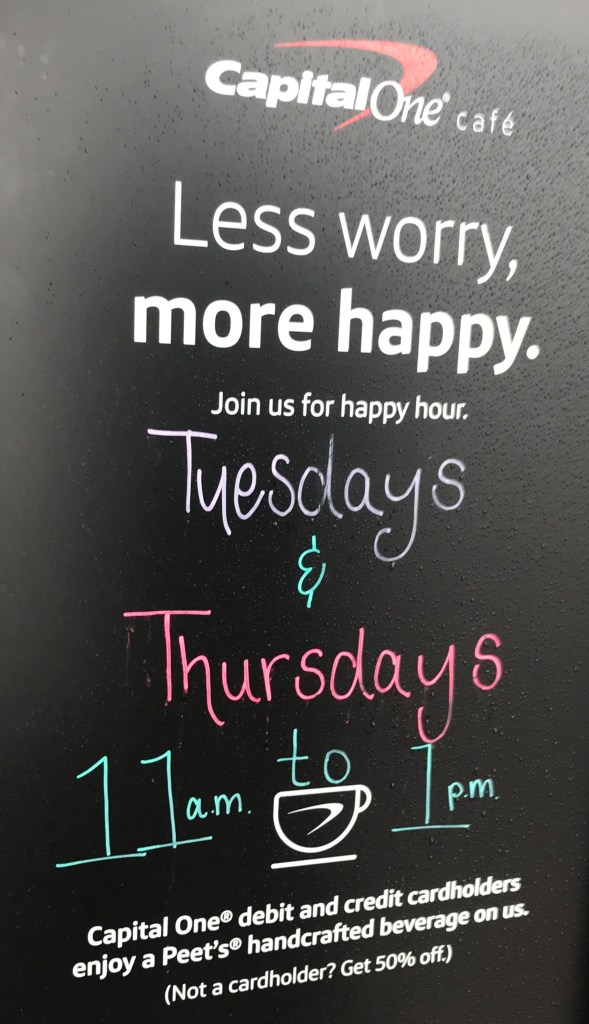 Capital One® café
Less worry,
more happy.
Join us for happy hour.
Tuesdays
&
Thursdays
11 a.m. to 1 p.m.
Capital One® debit and credit cardholders
enjoy a Peet's® handcrafted beverage on us.
(Not a cardholder? Get 50% off.)